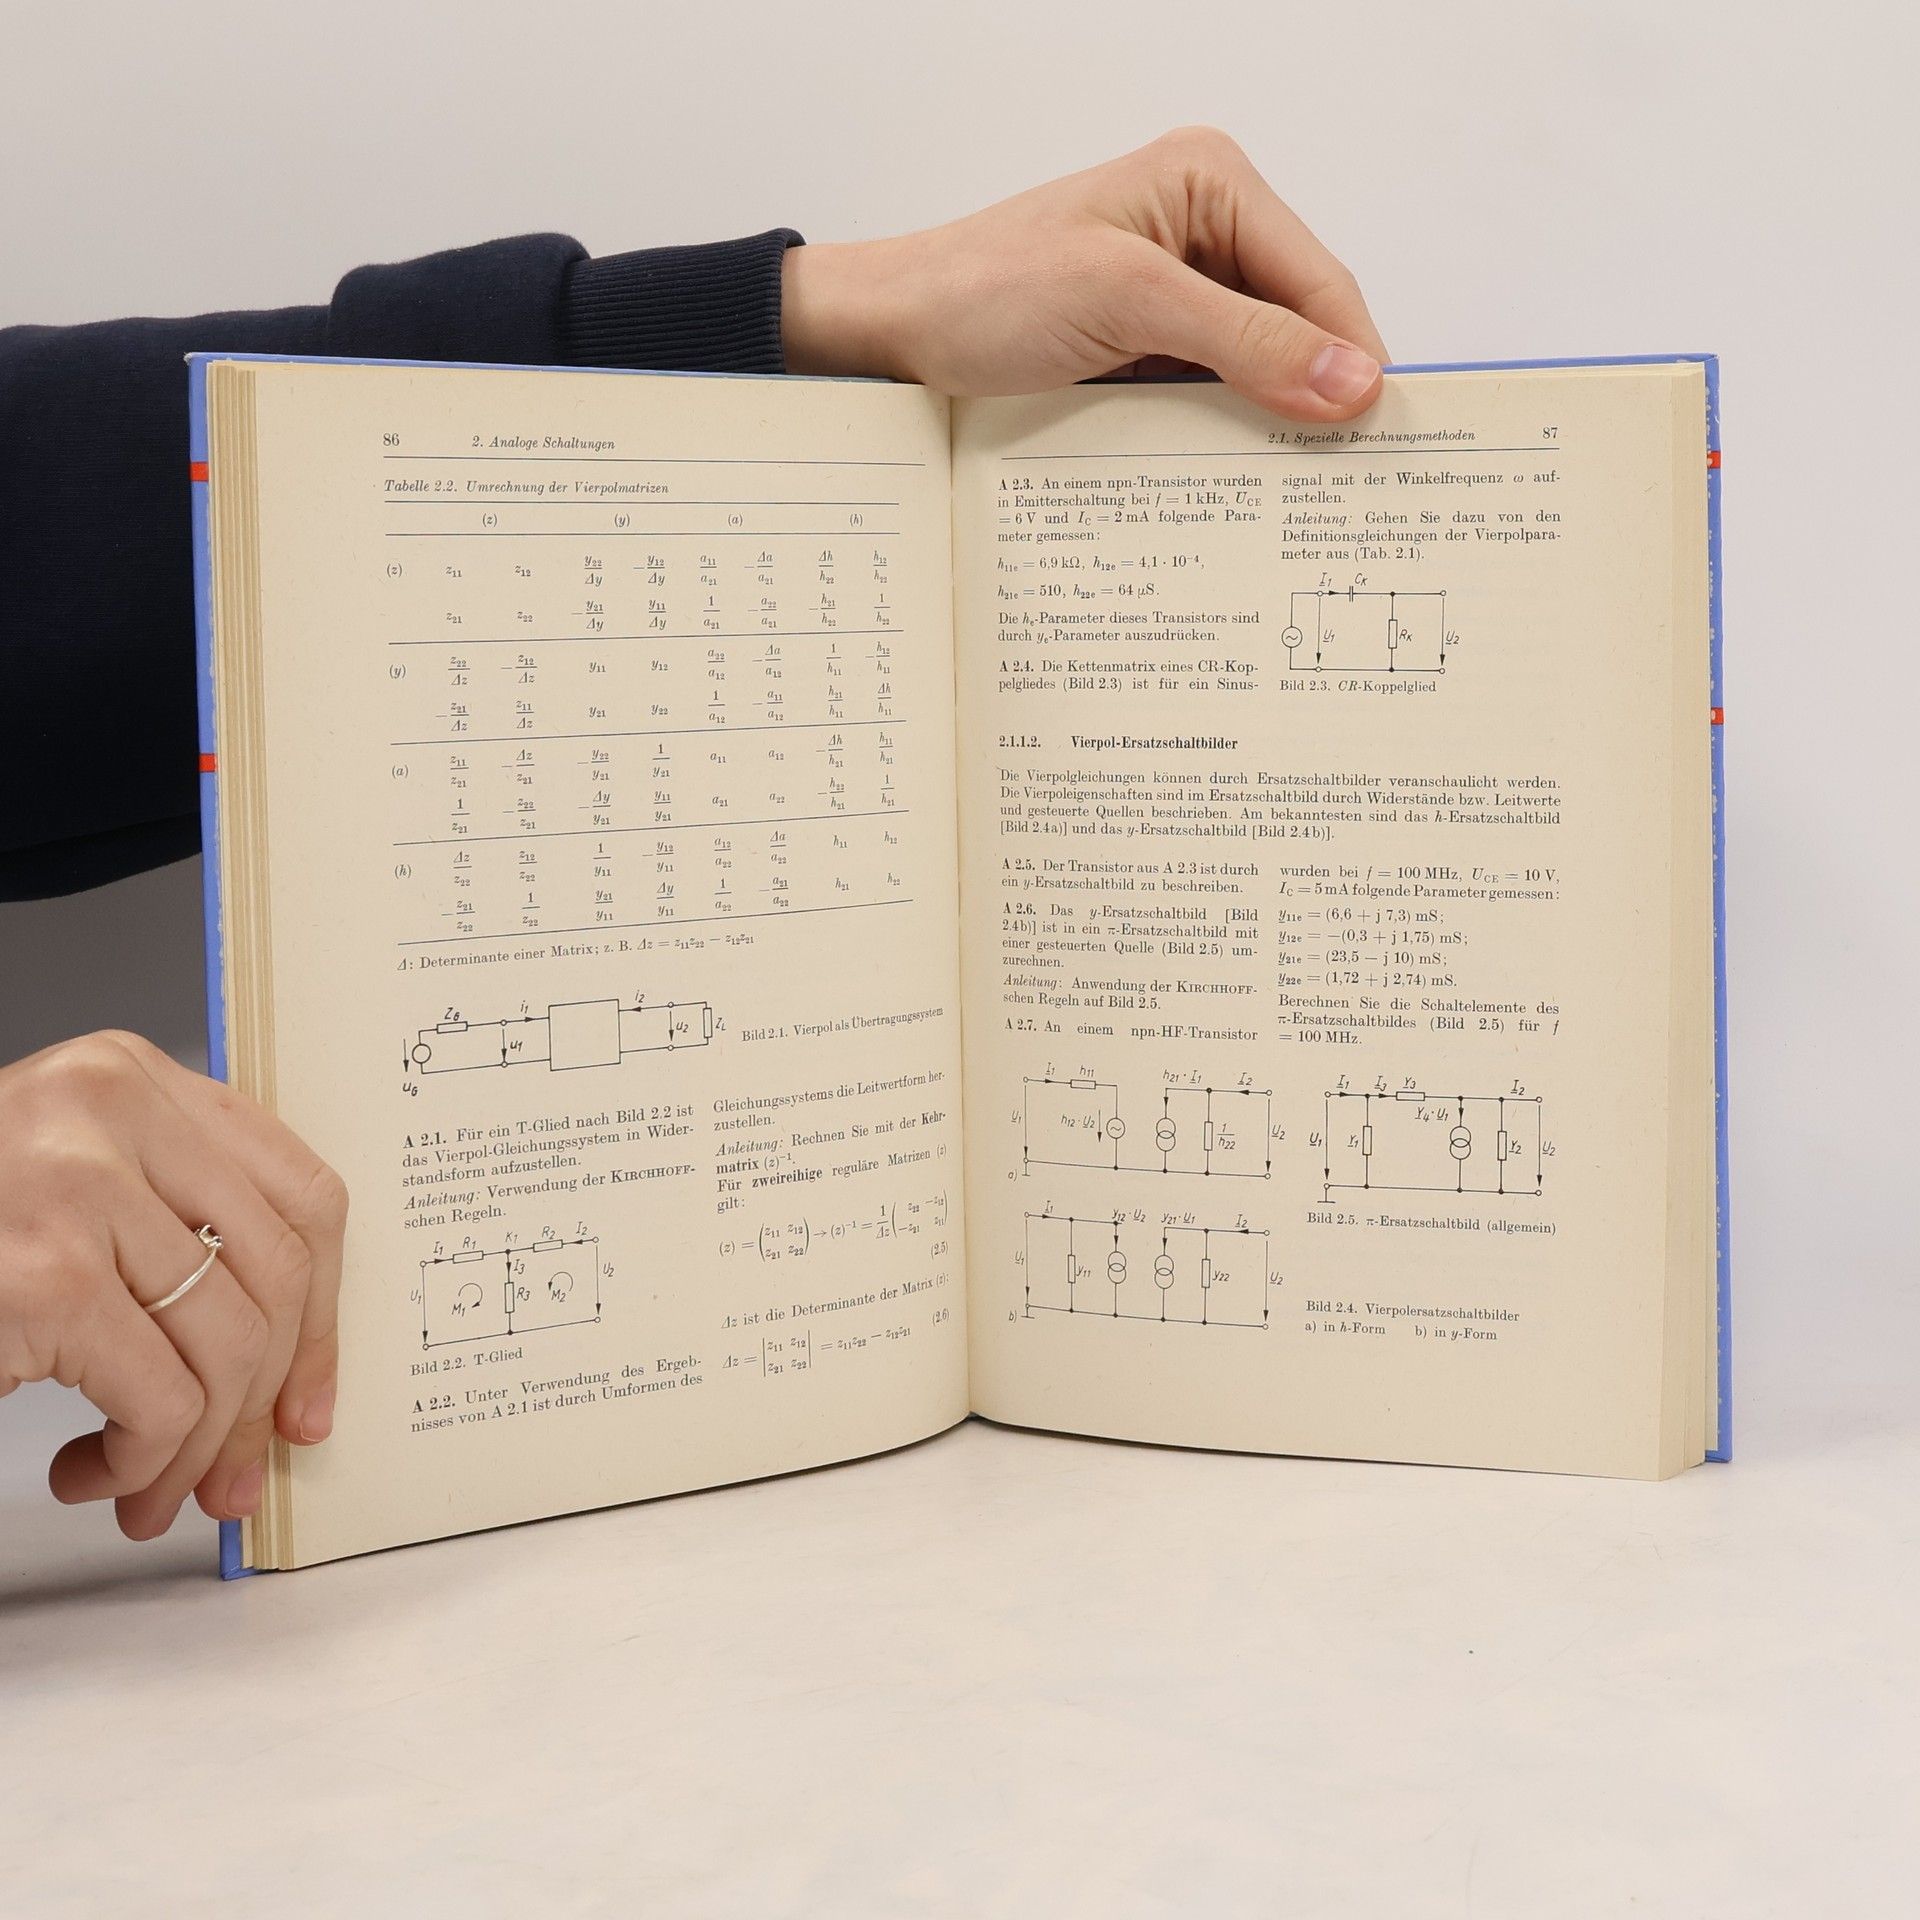 86 2. Analoge Schaltungen
Tabelle 2.2. Umrechnung der Vierpolmatrizen
(z) (y) (a) (h)
(z) z₁₁ z₁₂ y₂₂/Δy −y₁₂/Δy a₁₁/a₂₁ −Δa/a₂₁ Δh/h₂₂ h₁₂/h₂₂
z₂₁ z₂₂ −y₂₁/Δy y₁₁/Δy 1/a₂₁ −a₂₂/a₂₁ −h₂₁/h₂₂ 1/h₂₂
(y) z₂₂/Δz −z₁₂/Δz y₁₁ y₁₂ a₂₂/a₁₂ −Δa/a₁₂ 1/h₁₁ −h₁₂/h₁₁
−z₂₁/Δz z₁₁/Δz y₂₁ y₂₂ 1/a₁₂ −a₁₁/a₁₂ h₂₁/h₁₁ Δh/h₁₁
(a) z₁₁/z₂₁ −Δz/z₂₁ −y₂₂/y₂₁ 1/y₂₁ a₁₁ a₁₂ −Δh/h₂₁ h₁₁/h₂₁
1/z₂₁ −z₂₂/z₂₁ −Δy/y₂₁ y₁₁/y₂₁ a₂₁ a₂₂ −h₂₂/h₂₁ 1/h₂₁
(h) Δz/z₂₂ z₁₂/z₂₂ 1/y₁₁ −y₁₂/y₁₁ a₁₂/a₂₂ Δa/a₂₂ h₁₁ h₁₂
−z₂₁/z₂₂ 1/z₂₂ y₂₁/y₁₁ Δy/y₁₁ 1/a₂₂ −a₂₁/a₂₂ h₂₁ h₂₂
Δ: Determinante einer Matrix; z. B. Δz = z₁₁z₂₂ − z₁₂z₂₁
Z_G i₁ i₂ u₁ u₂ Z_L u_G
Bild 2.1. Vierpol als Übertragungssystem
A 2.1. Für ein T-Glied nach Bild 2.2 ist
das Vierpol-Gleichungssystem in Wider-
standsform aufzustellen.
Anleitung: Verwendung der KIRCHHOFF-
schen Regeln.
I₁ R₁ K₁ R₂ I₂
U₁ M₁ I₃ R₃ M₂ U₂
Bild 2.2. T-Glied
A 2.2. Unter Verwendung des Ergeb-
nisses von A 2.1 ist durch Umformen des
Gleichungssystems die Leitwertform her-
zustellen.
Anleitung: Rechnen Sie mit der Kehr-
matrix (z)⁻¹.
Für zweireihige reguläre Matrizen (z)
gilt:
(z) = (z₁₁ z₁₂ / z₂₁ z₂₂) → (z)⁻¹ = 1/Δz (z₂₂ −z₁₂ / −z₂₁ z₁₁)
(2.5)
Δz ist die Determinante der Matrix (z):
Δz = |z₁₁ z₁₂ / z₂₁ z₂₂| = z₁₁z₂₂ − z₁₂z₂₁ (2.6)
2.1. Spezielle Berechnungsmethoden 87
A 2.3. An einem npn-Transistor wurden
in Emitterschaltung bei f = 1 kHz, U_CE
= 6 V und I_C = 2 mA folgende Para-
meter gemessen:
h₁₁ₑ = 6,9 kΩ, h₁₂ₑ = 4,1 · 10⁻⁴,
h₂₁ₑ = 510, h₂₂ₑ = 64 μS.
Die hₑ-Parameter dieses Transistors sind
durch yₑ-Parameter auszudrücken.
A 2.4. Die Kettenmatrix eines CR-Kop-
pelgliedes (Bild 2.3) ist für ein Sinus-
signal mit der Winkelfrequenz ω auf-
zustellen.
Anleitung: Gehen Sie dazu von den
Definitionsgleichungen der Vierpolpara-
meter aus (Tab. 2.1).
I₁ C_K
U₁ R_K U₂
Bild 2.3. CR-Koppelglied
2.1.1.2. Vierpol-Ersatzschaltbilder
Die Vierpolgleichungen können durch Ersatzschaltbilder veranschaulicht werden.
Die Vierpoleigenschaften sind im Ersatzschaltbild durch Widerstände bzw. Leitwerte
und gesteuerte Quellen beschrieben. Am bekanntesten sind das h-Ersatzschaltbild
[Bild 2.4a)] und das y-Ersatzschaltbild [Bild 2.4b)].
A 2.5. Der Transistor aus A 2.3 ist durch
ein y-Ersatzschaltbild zu beschreiben.
A 2.6. Das y-Ersatzschaltbild [Bild
2.4b)] ist in ein π-Ersatzschaltbild mit
einer gesteuerten Quelle (Bild 2.5) um-
zurechnen.
Anleitung: Anwendung der KIRCHHOFF-
schen Regeln auf Bild 2.5.
A 2.7. An einem npn-HF-Transistor
wurden bei f = 100 MHz, U_CE = 10 V,
I_C = 5 mA folgende Parameter gemessen:
y₁₁ₑ = (6,6 + j 7,3) mS;
y₁₂ₑ = −(0,3 + j 1,75) mS;
y₂₁ₑ = (23,5 − j 10) mS;
y₂₂ₑ = (1,72 + j 2,74) mS.
Berechnen Sie die Schaltelemente des
π-Ersatzschaltbildes (Bild 2.5) für f
= 100 MHz.
I₁ h₁₁ h₂₁·I₁ I₂
U₁ h₁₂·U₂ 1/h₂₂ U₂
a)
I₁ y₁₂·U₂ y₂₁·U₁ I₂
U₁ y₁₁ y₂₂ U₂
b)
I₁ I₃ Y₃ I₂
Y₄·U₁
U₁ Y₁ Y₂ U₂
Bild 2.5. π-Ersatzschaltbild (allgemein)
Bild 2.4. Vierpolersatzschaltbilder
a) in h-Form b) in y-Form